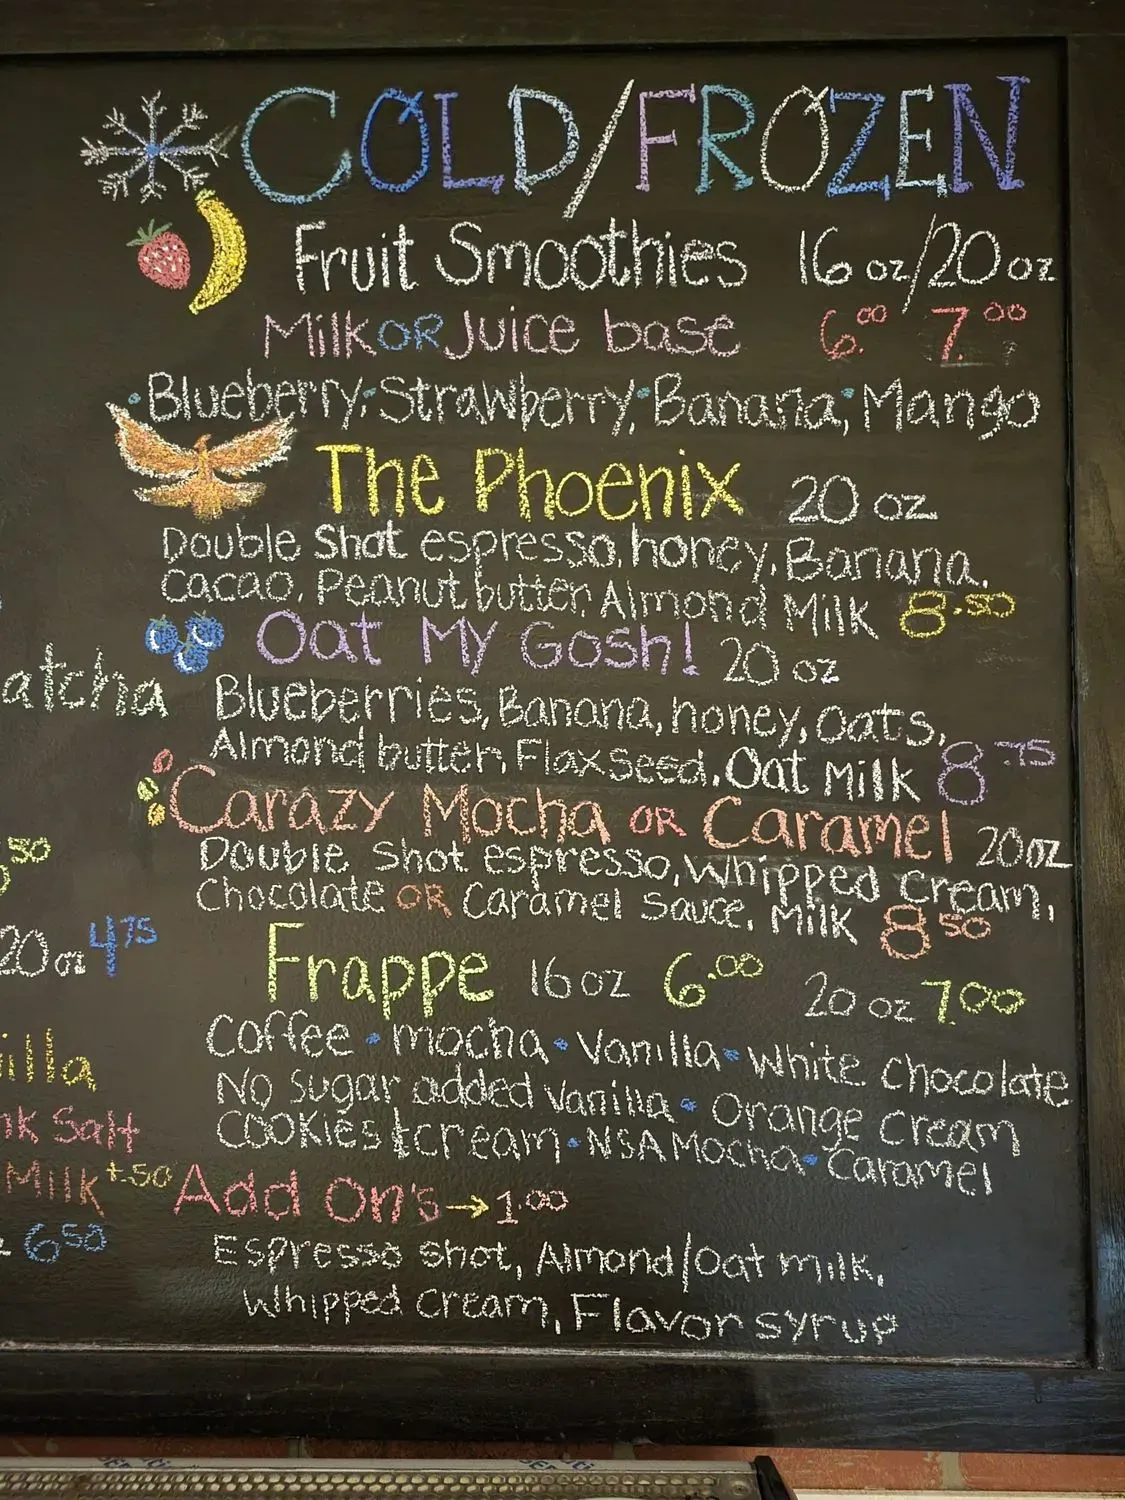 COLD/FROZEN
Fruit Smoothies 16 oz/20 oz
Milk OR Juice base 6.00 7.00
• Blueberry, • Strawberry, • Banana, • Mango
The Phoenix 20 oz
Double Shot espresso, honey, Banana,
Cacao, Peanut butter, Almond Milk 8.50
Oat My Gosh! 20 oz
Blueberries, Banana, honey, oats,
Almond butter, Flaxseed, Oat Milk 8.75
Carazy Mocha OR Caramel 20oz
Double Shot espresso, Whipped Cream,
Chocolate OR Caramel Sauce, Milk 8.50
Frappe 16 oz 6.00 20 oz 7.00
Coffee • mocha • Vanilla • White Chocolate
No Sugar added Vanilla • Orange Cream
Cookies & cream • NSA Mocha • Caramel
Add On's → 1.00
Espresso shot, Almond/Oat milk,
Whipped Cream, Flavor syrup
atcha
50
20 oz 4.75
illa
nk Salt
Milk +.50
6.50